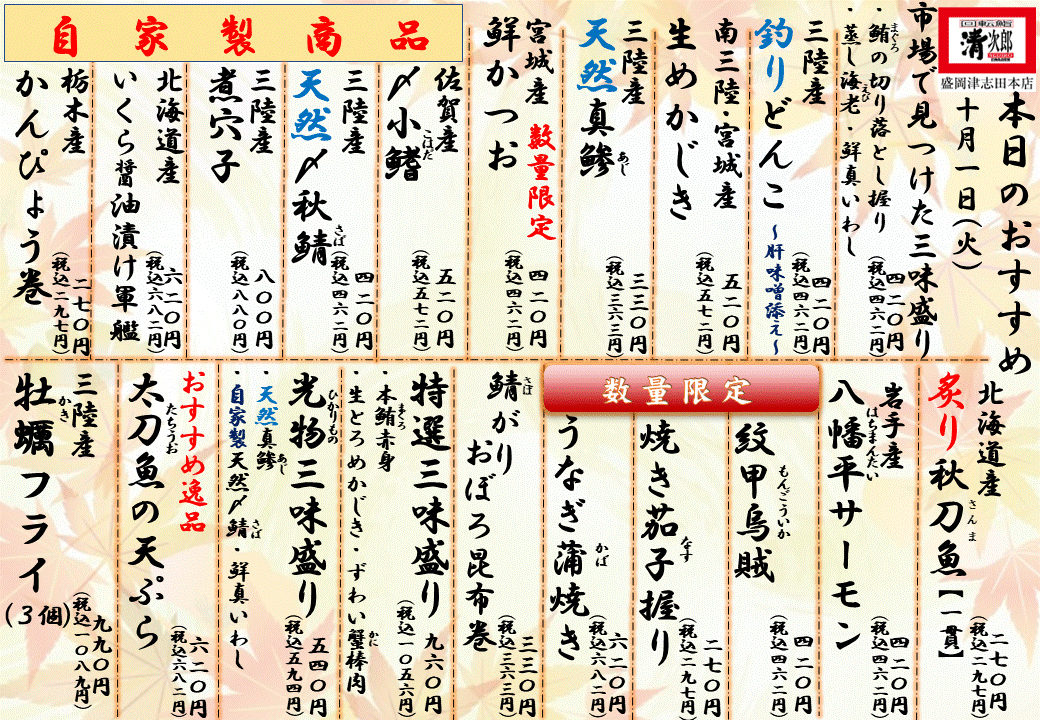 回転鮨
清次郎
SEIJIRO
盛岡津志田本店
本日のおすすめ
十月一日(火)
市場で見つけた三味盛り
・鮪の切り落とし握り
まぐろ
・蒸し海老・鮮真いわし
えび
四二〇円
(税込四六二円)
三陸産
釣りどんこ
~肝味噌添え~
四二〇円
(税込四六二円)
南三陸・宮城産
生めかじき
五二〇円
(税込五七二円)
三陸産
天然真鯵
あじ
三三〇円
(税込三六三円)
宮城産
鮮かつお
数量限定
四二〇円
(税込四六二円)
自家製商品
佐賀産
〆小鰭
こはだ
五二〇円
(税込五七二円)
三陸産
天然〆秋鯖
さば
四二〇円
(税込四六二円)
三陸産
煮穴子
八〇〇円
(税込八八〇円)
北海道産
いくら醤油漬け軍艦
六二〇円
(税込六八二円)
栃木産
かんぴょう巻
二七〇円
(税込二九七円)
北海道産
炙り秋刀魚【一貫】
さんま
二七〇円
(税込二九七円)
岩手産
八幡平サーモン
はちまんたい
四二〇円
(税込四六二円)
数量限定
紋甲烏賊
もんごういか
四二〇円
(税込四六二円)
焼き茄子握り
なす
二七〇円
(税込二九七円)
うなぎ蒲焼き
かば
六二〇円
(税込六八二円)
鯖がり
さば
おぼろ昆布巻
三三〇円
(税込三六三円)
特選三味盛り
・本鮪赤身
まぐろ
・生とろめかじき・ずわい蟹棒肉
かに
九六〇円
(税込一〇五六円)
光物三味盛り
ひかりもの
・天然真鯵
あじ
・自家製天然〆鯖・鮮真いわし
さば
五四〇円
(税込五九四円)
おすすめ逸品
太刀魚の天ぷら
たちうお
六二〇円
(税込六八二円)
三陸産
牡蠣フライ
かき
(3個)
九九〇円
(税込一〇八九円)